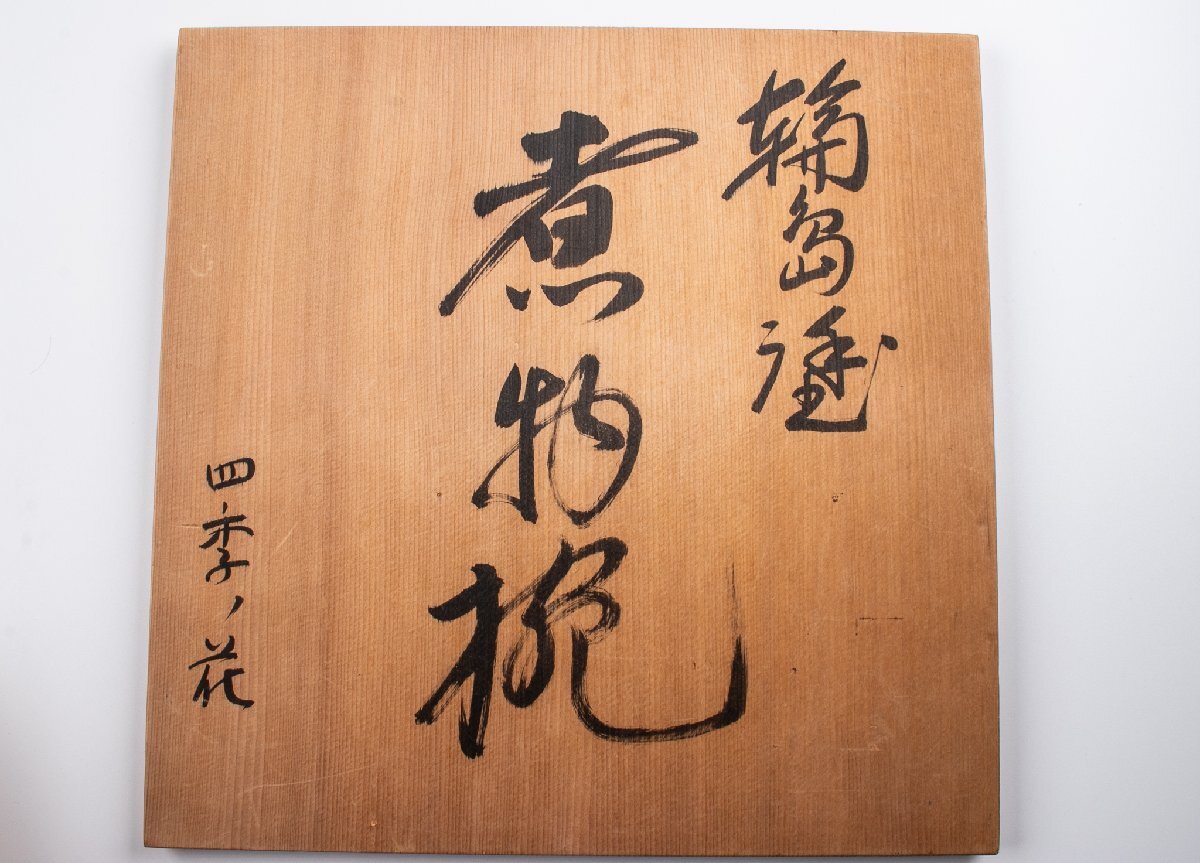 輪島塗
煮物椀
四季ノ花